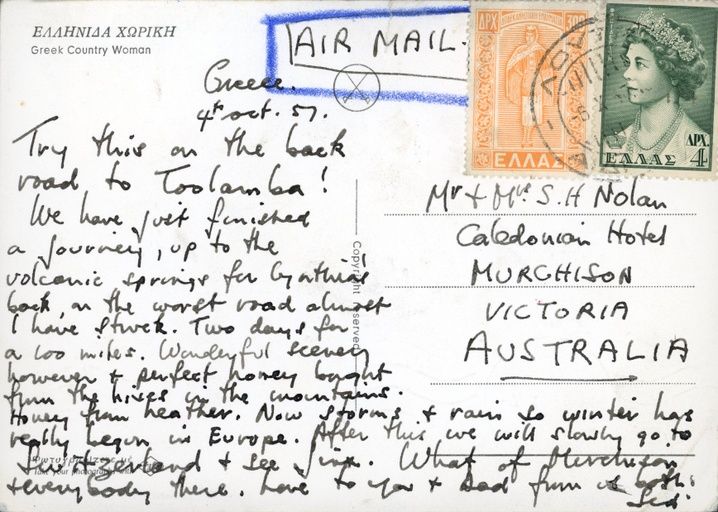 ΕΛΛΗΝΙΔΑ ΧΩΡΙΚΗ
Greek Country Woman
AIR MAIL.
ΔΡΧ 300
ΕΛΛΑΣ
ΔΡΧ. 4
ΕΛΛΑΣ
Greece.
4th oct. 57.
Try this on the back
road to Toolamba!
We have just finished
a journey, up to the
volcanic springs for Cynthia's
back, on the worst road almost
I have struck. Two days for
a 100 miles. Wonderful scenery
however + perfect honey bought
from the hives in the mountains.
Honey from heather. Now storms + rain so winter has
really begun in Europe. After this we will slowly go to
Switzerland + see Jinx. What of Murchison
+ everybody there. Love to you + Dad from us both.
Sid.
Mr + Mrs S. H Nolan
Caledonian Hotel
MURCHISON
VICTORIA
AUSTRALIA
Copyright reserved
Φωτογραφίζετε με
Take your photographs with